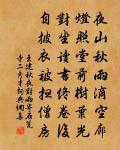 夜山秋雨滴空廊
燈照堂前樹葉光
對坐讀書終卷後
自披衣被掃僧房
王建秋夜對雨寄石甕
寺二秀才詞典網集